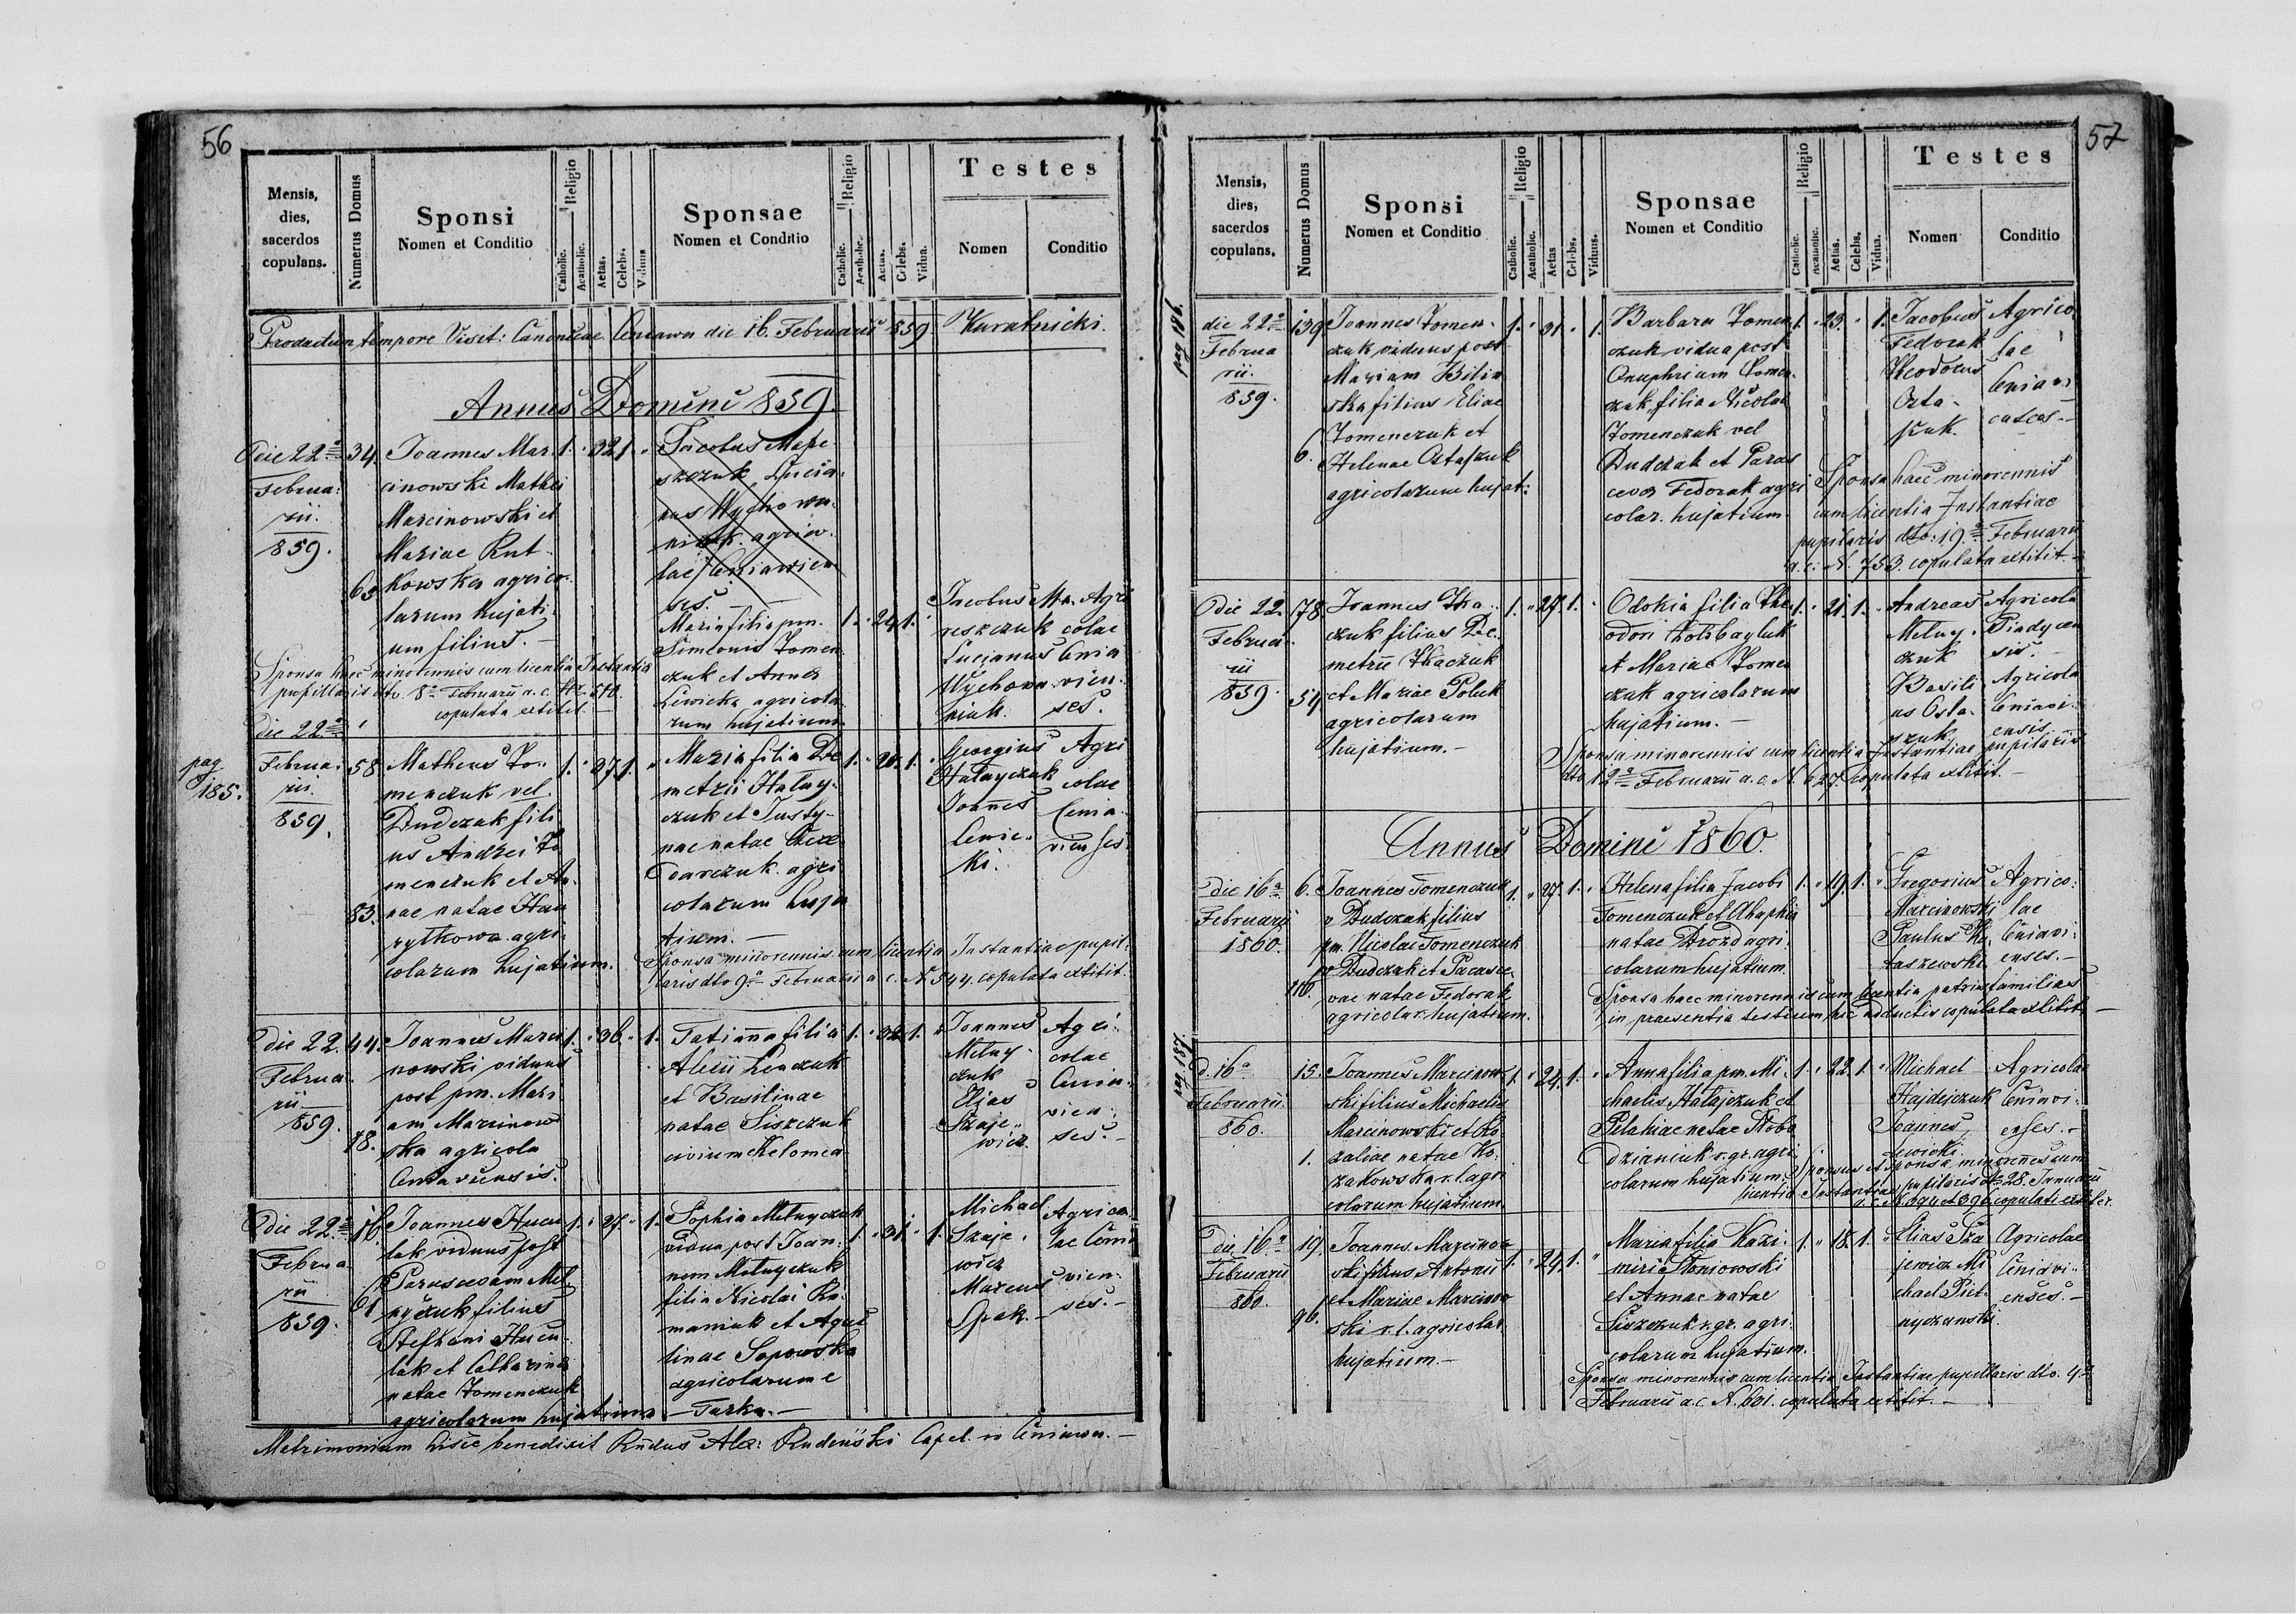 56
Mensis, dies, sacerdos copulans.
Numerus Domus
Sponsi
Nomen et Conditio
Religio
Catholic.
Acatholic.
Aetas.
Celebs.
Viduus
Sponsae
Nomen et Conditio
Religio
Catholic.
Acatholic.
Aetas.
Celebs.
Vidua.
Testes
Nomen
Conditio
Productum tempore Visit: Canonicae Ceniawa die 16. Februarii 859.
Annus Domini 859.
die 22a Februa: rii. 859.
34
63
Joannes Mar
cinowski Mathei
Marcinowski et
Mariae Rut
kowska agrico
larum hujati
um filius. —
1. " 32 1. "
Jacobus Mare
szczuk Lucia
nus Wychowa
niuk agrico
lae Ceniawien
ses. —
Maria filia pm.
Simeonis Tomen
czuk et Anna
Lewicka agricola
rum hujatium
1. " 24 1. "
Jacobus Ma
reszczuk
Lucianus
Wychowa
niuk.
Agri
colae
Cenia
vien
ses.
Sponsa haec minorennis cum licentia Instantia
pupillaris dto. 8a Februarii a. c. Nr 540.
copulata extitit. —
pag 185.
die 22a Februa: rii. 859.
58
83.
Matheus To
menczuk vel
Dudczak fili
us Andrei To
menczuk et An
nae natae Hau
rylkowa agri
colarum hujatium.
1. " 27 1. "
Maria filia De
metrii Halay
czuk et Justy
nae natae
darczuk agri
colarum huja
tium. —
1. " 20. 1. "
Georgius
Halayczuk
Joannes
Lewic
ki.
Agri
colae
Cenia
vienses
Sponsa minorennis cum licentia Instantiae pupil
laris dto 9a Februarii a. c. N 544. copulata extitit.
die 22. Februa rii 859.
44.
18.
Joannes Marci
nowski viduus
post pm. Mari
am Marcinow
ska agricola
Ceniaviensis.
1. " 36 " 1.
Tatianna filia
Alexii Lewczuk
et Basilinae
natae Siszczuk
civium Kolomea
1. " 32 1. "
Joannes
Melny
czuk
Elias
Szaje
wicz.
Agri
colae
Cenia
vien
ses. —
die 22a Februa rii 859.
16.
61
Joannes Hucu
lak viduus post
Parascevam Mel
nyczuk filius
Stephani Hucu
lak et Catharina
natae Tomenczuk
agricolarum hujatium
1. " 27. " 1.
Sophia Melnyczuk
vidua post Joan
nem Melnyczuk
filia Nicolai Ro
maniuk et Aqui
linae Sopowska
agricolarum e
— Turka. —
1. " 31. " 1.
Michael
Szaje
wicz
Marcus
Spak.
Agrico
lae Cenia
vien
ses. —
Matrimonium hisce benedixit Rndus Alex: Rudeński Capel. in Ceniawa. —
57
Mensis, dies, sacerdos copulans.
Numerus Domus
Sponsi
Nomen et Conditio
Religio
Catholic.
Acatholic.
Aetas
Celebs.
Viduus.
Sponsae
Nomen et Conditio
Religio
Catholic.
Acatholic.
Aetas.
Celebs.
Vidua.
Testes
Nomen
Conditio
pag 186.
die 22a Februa rii. 859.
139
6.
Joannes Tomen
czuk viduus post
Mariam Bilin
ska filius Eliae
Tomenczuk et
Helenae Ostaszuk
agricolarum hujat:
1. " 31 " 1.
Barbara Tomen
czuk vidua post
Onuphrium Tomen
czuk, filia Nicolai
Tomenczuk vel
Dudczak et Paras
ceva Fedorak agri
colar. hujatium
1. " 23. " 1.
Jacobus
Fedorak
Theodorus
Osta
szuk.
Agrico
lae
Ceniavi
enses. —
Sponsa haec minorennis
cum licentia Instantiae
pupilaris dto: 19a Februarii
a. c. N. 753. copulata extitit. —
die 22. Februa rii 859
78.
54
Joannes Tka
czuk filius De
metrii Tkaczuk
et Mariae Poluk
agricolarum
hujatium. —
1. " 27. 1. "
Odokia filia The
odori
et Mariae Tomen
czuk agricolarum
hujatium. —
1. " 21. 1. "
Andreas
Melny
czuk
Basili
us Osta
szuk
Agricola
Piadycen
sis. —
Agricola
Ceniavi
ensis
Sponsa minorennis cum licentia Instantiae pupilaris
dto 12a Februarii a. c. N. 627. copulata extitit. —
Annus Domini 1860.
die 16a Februarii 1860.
6.
110.
Joannes Tomenczuk
v Dudczak filius
pm. Nicolai Tomenczuk
v Dudczak et Parasce
vae natae Fedorak
agricolar. hujatium.
1. " 27. 1. "
Helena filia Jacobi
Tomenczuk et Ahaphia
natae Drozd agri
colarum hujatium.
1. " 19. 1. "
Gregorius
Marcinowski
Paulus
taszewski
Agrico:
lae
Ceniavi:
enses. —
Sponsa haec minorennis cum licentia patris familias
in praesentia testium hic adductis copulata extitit. —
pag 187.
d. 16a Februarii. 860.
15.
1.
Joannes Marcinow
ski filius Michaelis
Marcinowski et Ro
zaliae natae Ko
zakowska r. l. agri
colarum hujatium.
1. " 24. 1. "
Anna filia pm. Mi
chaelis Halajczuk et
Pelahiae natae Skobo
dzianiuk r. gr. agri
colarum hujatium.
1. " 22. 1. "
Michael
Hajdejczuk
Joannes
Lewicki
Agricolae
Ceniavi:
enses. —
Sponsus et Sponsa minorennes cum
licentia Instantiae pupilaris dto 28. Januarii
a. c. N. 394 et 396 copulati extiter.
die 16a Februarii 860.
19.
96.
Joannes Marcinow
ski filius Antonii
et Mariae Marcinow
ski r. l. agricolar.
hujatium. —
1. " 24. 1. "
Maria filia Kazi
miri Stoniowski
et Annae natae
Siszczuk r. gr. agri
colarum hujatium.
1. " 18. 1. "
Elias Sza
jewicz Mi
chael Piet
nyczanski.
Agricolae
Ceniavi
enses. —
Sponsa minorennis cum licentia Instantiae pupillaris dto. 4a
Februarii a. c. N. 601. copulata extitit. —